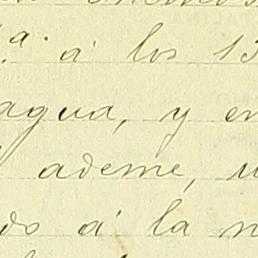 a. á los 13
agua, y en
ademe, u
dos á la n